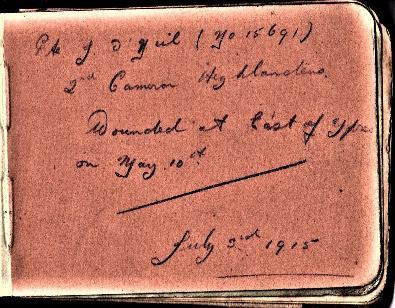 Pte J O'Neil (No 15691)
2nd Cameron Highlanders.
Wounded at East of Ypres
on May 10th
July 3rd 1915